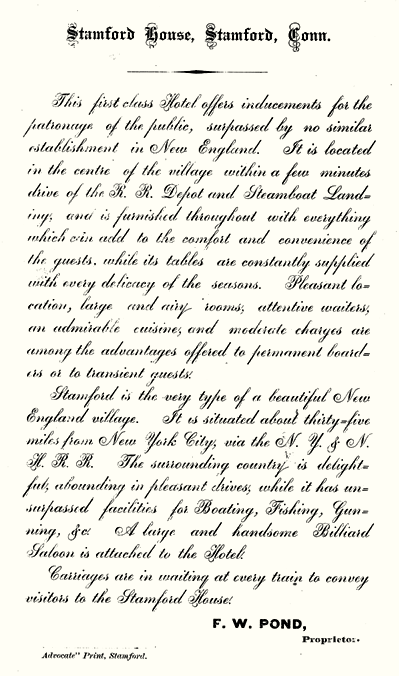 Stamford House, Stamford, Conn.
This first class Hotel offers inducements for the
patronage of the public, surpassed by no similar
establishment in New England. It is located
in the centre of the village within a few minutes
drive of the R. R. Depot and Steamboat Land=
ing; and is furnished throughout with everything
which can add to the comfort and convenience of
the guests, while its tables are constantly supplied
with every delicacy of the seasons. Pleasant lo=
cation, large and airy rooms; attentive waiters;
an admirable cuisine; and moderate charges are
among the advantages offered to permanent board=
ers or to transient guests.
Stamford is the very type of a beautiful New
England village. It is situated about thirty=five
miles from New York City, via the N. Y. & N.
H. R. R. The surrounding country is delight=
ful; abounding in pleasant drives; while it has un=
surpassed facilities for Boating, Fishing, Gun=
ning, &c. A large and handsome Billiard
Saloon is attached to the Hotel.
Carriages are in waiting at every train to convey
visitors to the Stamford House.
F. W. POND,
Proprietor.
Advocate" Print, Stamford.